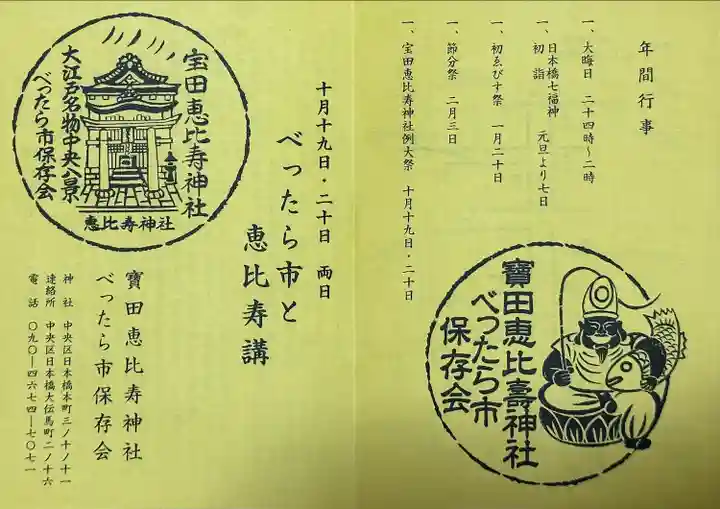 年間行事
一、大晦日 二十四時～二時
一、日本橋七福神
初詣 元旦より七日
一、初ゑびす祭 一月二十日
一、節分祭 二月三日
一、宝田恵比寿神社例大祭 十月十九日・二十日
寶田恵比壽神社
べったら市
保存会
十月十九日・二十日 両日
べったら市と
恵比寿講
宝田恵比寿神社
大江戸名物中央八景
べったら市保存会
恵比寿神社
寶田恵比寿神社
べったら市保存会
神社 中央区日本橋本町三ノ十ノ十一
連絡所 中央区日本橋大伝馬町二ノ十六
電話 〇九〇―四六七四―七〇七一